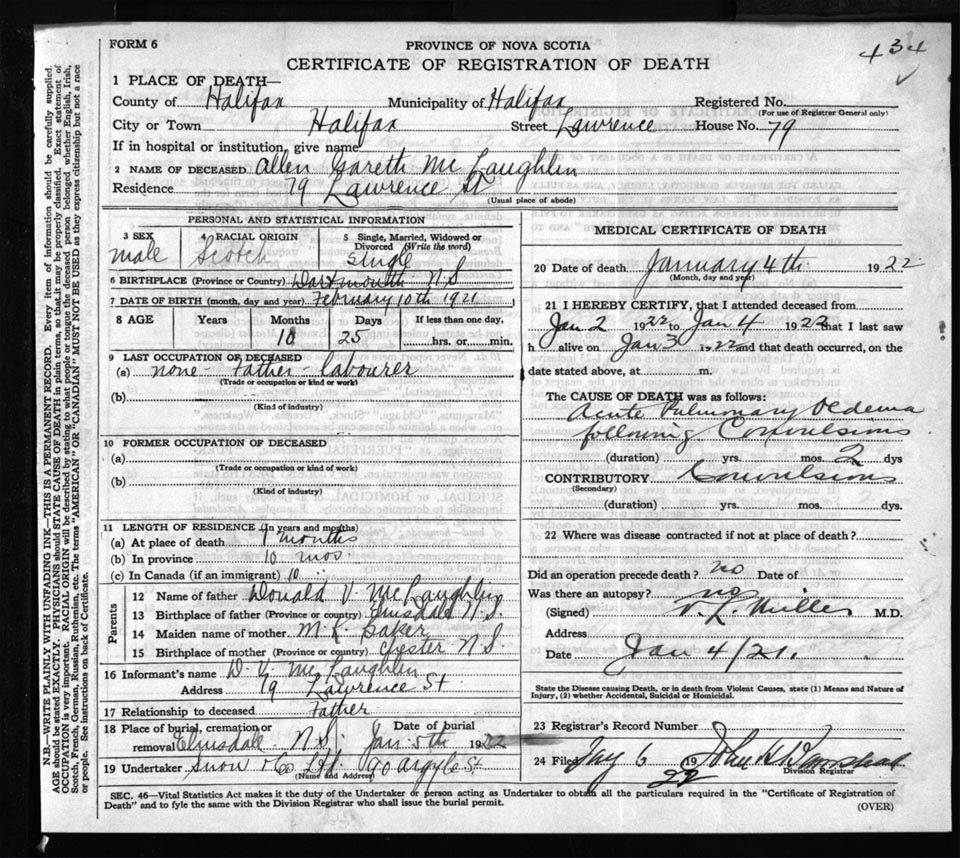 FORM 6
PROVINCE OF NOVA SCOTIA
434
CERTIFICATE OF REGISTRATION OF DEATH
N.B.—WRITE PLAINLY WITH UNFADING INK—THIS IS A PERMANENT RECORD. Every item of information should be carefully supplied.
AGE should be stated EXACTLY. PHYSICIANS should STATE CAUSE OF DEATH in plain terms, so that it may be properly classified. Exact statement of
OCCUPATION is very important. RACIAL ORIGIN will be described by stating to what people or tongue the deceased person belonged, whether English, Irish,
Scotch, French, German, Russian, Ruthenian, etc. The terms "AMERICAN" OR "CANADIAN" MUST NOT BE USED as they express citizenship but not a race
or people. See instructions on back of Certificate.
1 PLACE OF DEATH—
County of Halifax Municipality of Halifax Registered No.
(For use of Registrar General only)
City or Town Halifax Street Lawrence House No. 79
If in hospital or institution, give name
2 NAME OF DECEASED Allen Gareth McLaughlin
Residence 79 Lawrence St
(Usual place of abode)
PERSONAL AND STATISTICAL INFORMATION
3 SEX 4 RACIAL ORIGIN 5 Single, Married, Widowed or
Divorced (Write the word)
male Scotch single
6 BIRTHPLACE (Province or Country) Dartmouth N.S
7 DATE OF BIRTH (month, day and year) February 10th 1921
8 AGE Years Months Days If less than one day,
10 25 hrs. or min.
9 LAST OCCUPATION OF DECEASED
(a) none - Father - labourer
(Trade or occupation or kind of work)
(b)
(Kind of industry)
10 FORMER OCCUPATION OF DECEASED
(a)
(Trade or occupation or kind of work)
(b)
(Kind of industry)
11 LENGTH OF RESIDENCE (In years and months)
(a) At place of death months
(b) In province 10 mos.
(c) In Canada (if an immigrant) 10
Parents
12 Name of father Donald V. McLaughlin
13 Birthplace of father (Province or country) Elmsdale N.S
14 Maiden name of mother M. L. Baker
15 Birthplace of mother (Province or country) Chester N.S.
16 Informant's name D. V. McLaughlin
Address 79 Lawrence St.
17 Relationship to deceased Father
18 Place of burial, cremation or Date of burial
removal Elmsdale N.S. Jan 5th 1922
19 Undertaker Snow & Co Lt. 90 Argyle St
(Name and Address)
MEDICAL CERTIFICATE OF DEATH
20 Date of death January 4th 1922
(Month, day and year)
21 I HEREBY CERTIFY, that I attended deceased from
Jan 2 1922 to Jan 4 1922 that I last saw
h alive on Jan 3 1922 and that death occurred, on the
date stated above, at m.
The CAUSE OF DEATH was as follows:
Acute Pulmonary Oedema
following Convulsions
(duration) yrs. mos. 2 dys
CONTRIBUTORY Convulsions
(Secondary)
(duration) yrs. mos. dys.
22 Where was disease contracted if not at place of death?
Did an operation precede death? no Date of
Was there an autopsy? no
(Signed) V. L. Miller M.D.
Address
Date Jan 4/21.
State the Disease causing Death, or in death from Violent Causes, state (1) Means and Nature of
Injury, (2) whether Accidental, Suicidal or Homicidal.
23 Registrar's Record Number
24 Filed 6 19 22 John
Division Registrar
SEC. 46—Vital Statistics Act makes it the duty of the Undertaker or person acting as Undertaker to obtain all the particulars required in the "Certificate of Registration of
Death" and to fyle the same with the Division Registrar who shall issue the burial permit.
(OVER)